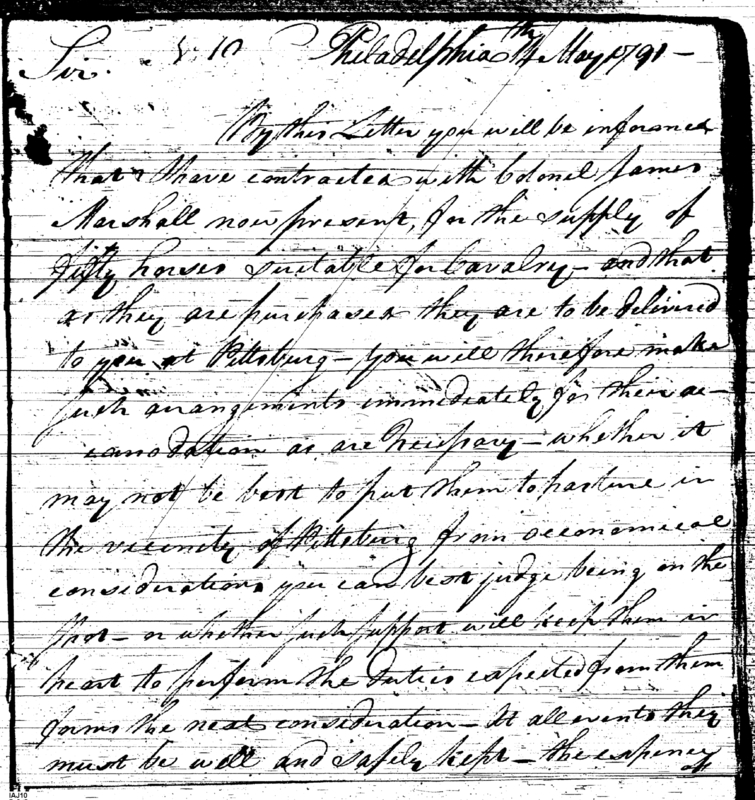 Philadelphia 14th May 1791 —
Sir. N. 10
By this Letter you will be informed
that I have contracted with Colonel James
Marshall now present, for the supply of
fifty horses suitable for Cavalry – and that
as they are purchased they are to be delivered
to you at Pittsburg – you will therefore make
such arrangements immediately for their ac-
comodation as are necessary – whether it
may not be best to put them to pasture in
the vicinity of Pittsburg from oeconomical
considerations you can best judge being on the
spot – or whether such support will keep them in
heart to perform the duties expected from them
forms the next consideration – At all events they
must be well and safely kept – the expences
of
IAJ10